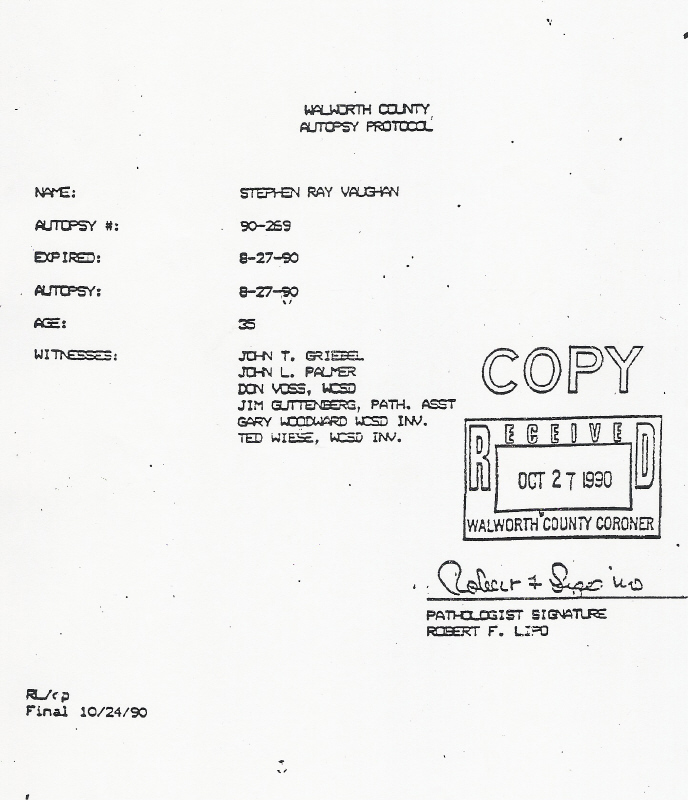 WALWORTH COUNTY
AUTOPSY PROTOCOL
NAME: STEPHEN RAY VAUGHAN
AUTOPSY #: 90-269
EXPIRED: 8-27-90
AUTOPSY: 8-27-90
AGE: 35
WITNESSES: JOHN T. GRIEBEL
JOHN L. PALMER
DON VOSS, WCSD
JIM GUTTENBERG, PATH. ASST
GARY WOODWARD WCSD INV.
TED WIESE, WCSD INV.
COPY
RECEIVED
OCT 27 1990
WALWORTH COUNTY CORONER
PATHOLOGIST SIGNATURE
ROBERT F. LIPO
RL/cp
Final 10/24/90